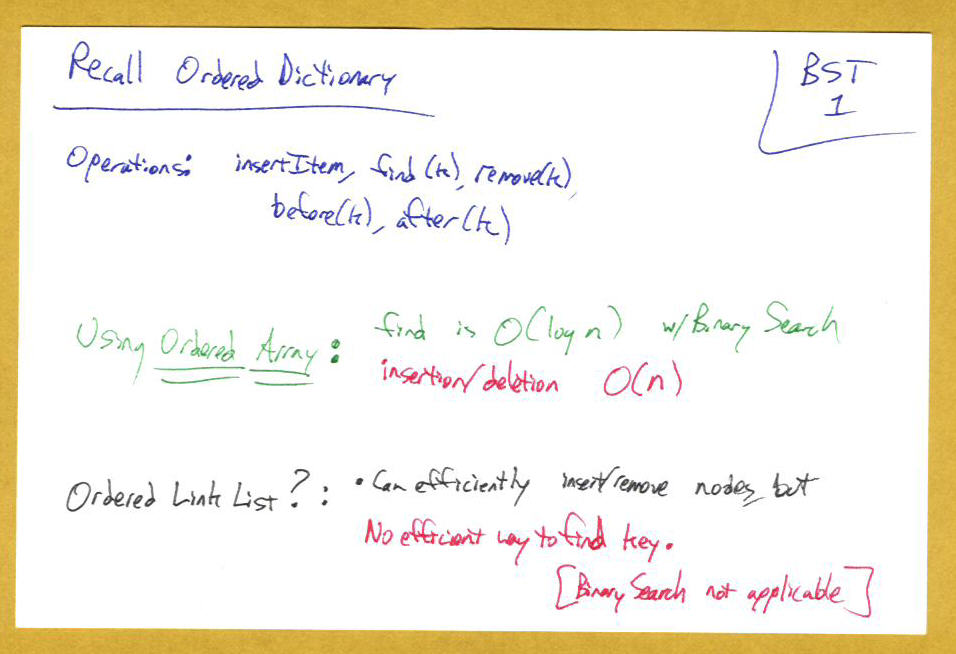 Recall Ordered Dictionary
BST
1
Operations: insertItem, find(k), remove(k),
before(k), after(k)
Using Ordered Array: find is O(log n) w/Binary Search
insertion/deletion O(n)
Ordered Link List?: • Can efficiently insert/remove nodes, but
No efficient way to find key.
[Binary Search not applicable]